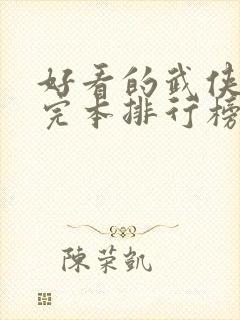 好看的武侠
完本排行榜
陈荣凯